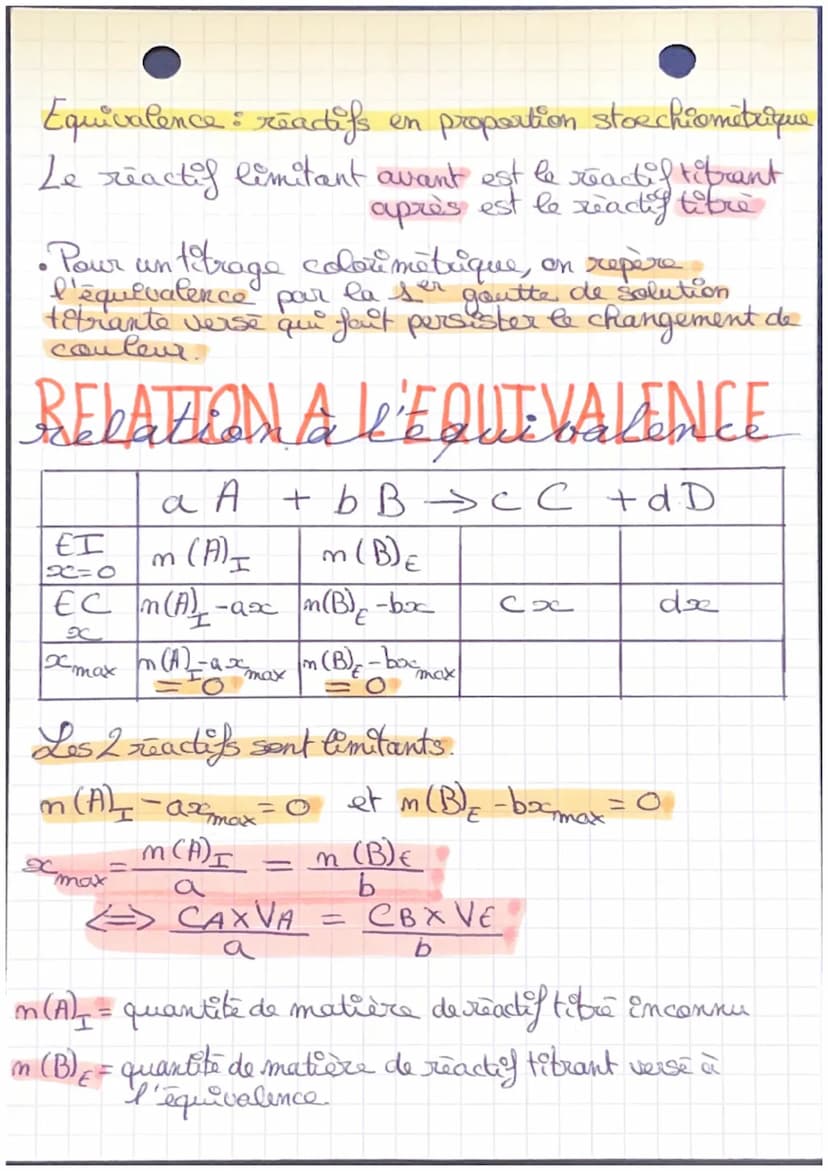 Equivalence : réactifs en proportion stoechiométrique
Le réactif limitant avant est le réactif titrant
après est le réactif titré
• Pour un titrage colorimétrique, on repère
l'équivalence par la 1er goutte de solution
titrante versé qui fait persister le changement de
couleur.
RELATION A L'EQUIVALENCE
relation à l'équivalence
a A + b B → c C + d D
EI x=0 n(A)I n(B)E
EC x n(A)I - ax n(B)E - bx cx dx
xmax n(A)I - a xmax = 0 n(B)E - bxmax = 0
Les 2 réactifs sont limitants.
n(A)I - axmax = 0 et n(B)E - bxmax = 0
xmax = n(A)I / a = n(B)E / b
⇔ CA x VA / a = CB x VE / b
n(A)I = quantité de matière de réactif titré inconnu
n(B)E = quantité de matière de réactif titrant versé à
l'équivalence